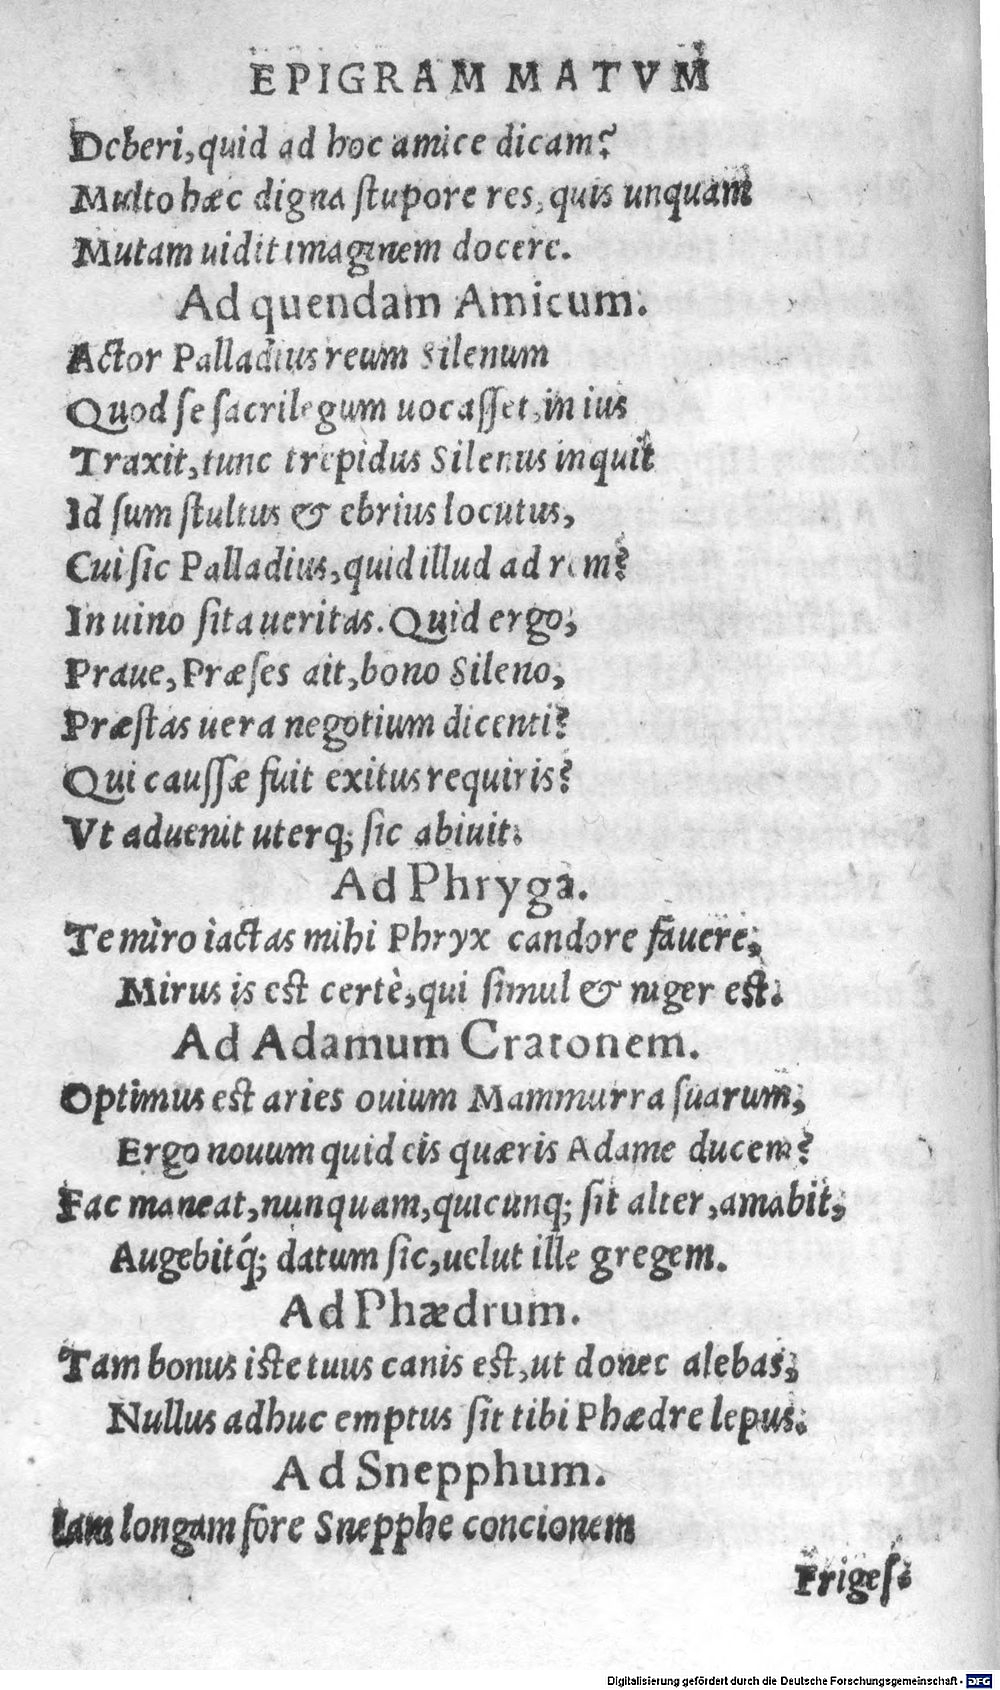 EPIGRAMMATVM
Deberi, quid ad hoc amice dicam?
Multo hæc digna ſtupore res, quis unquam
Mutam uidit imaginem docere.
Ad quendam Amicum.
Actor Palladius reum Silenum
Quod ſe ſacrilegum uocaſſet, in ius
Traxit, tunc trepidus Silenus inquit
Id ſum ſtultus & ebrius locutus,
Cui ſic Palladius, quid illud ad rem?
In uino ſita ueritas. Quid ergo;
Praue, Præſes ait, bono Sileno,
Præſtas uera negotium dicenti?
Qui cauſſæ fuit exitus requiris?
Vt aduenit uterq; ſic abiuit.
Ad Phryga.
Te miro iactas mihi Phryx candore fauere,
Mirus is est certè, qui ſimul & niger est.
Ad Adamum Cratonem.
Optimus est aries ouium Mammurra ſuarum,
Ergo nouum quid cis quæris Adame ducem?
Fac maneat, nunquam, quicunq; ſit alter, amabit,
Augebitq́; datum ſic, uelut ille gregem.
Ad Phædrum.
Tam bonus iste tuus canis est, ut donec alebas,
Nullus adhuc emptus ſit tibi Phædre lepus.
Ad Snepphum.
Iam longam fore Snepphe concionem
Frigeſ-
Digitalisierung gefördert durch die Deutsche Forschungsgemeinschaft - DFG